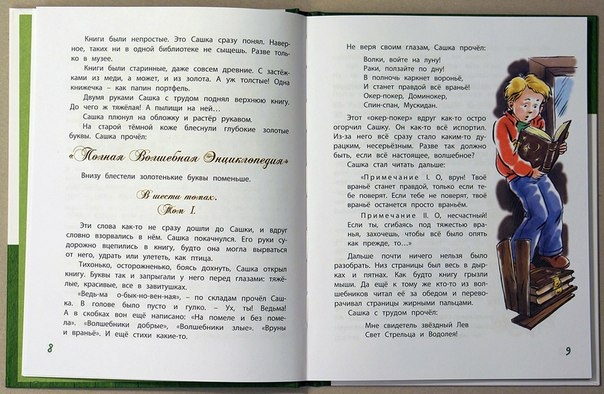 Книги были непростые. Это Сашка сразу понял. Навер-
ное, таких ни в одной библиотеке не сыщешь. Разве толь-
ко в музее.
Книги были старинные, даже совсем древние. С застёж-
ками из меди, а может, и из золота. А уж толстые! Одна
книжечка – как папин портфель.
Двумя руками Сашка с трудом поднял верхнюю книгу.
До чего ж тяжёлая! А пылищи на ней...
Сашка плюнул на обложку и растёр рукавом.
На старой тёмной коже блеснули глубокие золотые
буквы. Сашка прочёл:
«Полная Волшебная Энциклопедия»
Внизу блестели золотенькие буквы поменьше.
В шести томах.
Том I.
Эти слова как-то не сразу дошли до Сашки, и вдруг
словно взорвались в нём. Сашка покачнулся. Его руки су-
дорожно вцепились в книгу, будто она могла вырваться
от него, удрать или улететь, как птица.
Тихонько, осторожненько, боясь дохнуть, Сашка открыл
книгу. Буквы так и запрыгали у него перед глазами: тяжё-
лые, красивые, все в завитушках.
«Ведь-ма о-бык-но-вен-ная», – по складам прочёл Саш-
ка. В голове было пусто и гулко. – Ух, ты! Ведьма!
А в скобках вон ещё написано: «На помеле и без поме-
ла». «Волшебники добрые», «Волшебники злые». «Вруны
и враньё». И ещё стихи какие-то.
8
Не веря своим глазам, Сашка прочёл:
Волки, войте на луну!
Раки, ползайте по дну!
В полночь каркнет вороньё,
И станет правдой всё враньё!
Окер-покер, Доминокер,
Спин-спан, Мускидан.
Этот «окер-покер» вдруг как-то остро
огорчил Сашку. Он как-то всё испортил.
Из-за него всё сразу стало каким-то ду-
рацким, несерьёзным. Разве так должно
быть, если всё настоящее, волшебное?
Сашка стал читать дальше:
«Примечание I. О, врун! Твоё
враньё станет правдой, только если те-
бе поверят. Если тебе не поверят, твоё
враньё останется просто враньём.
Примечание II. О, несчастный!
Если ты, сгибаясь под тяжестью вра-
нья, захочешь, чтобы всё было опять
как прежде, то...»
Дальше почти ничего нельзя было
разобрать. Низ страницы был весь в дыр-
ках и пятнах. Как будто книгу грызли
мыши. Да ещё к тому же кто-то из вол-
шебников читал её за обедом и перево-
рачивал страницы жирными пальцами.
Сашка с трудом прочёл:
Мне свидетель звёздный Лев
Свет Стрельца и Водолея!
9